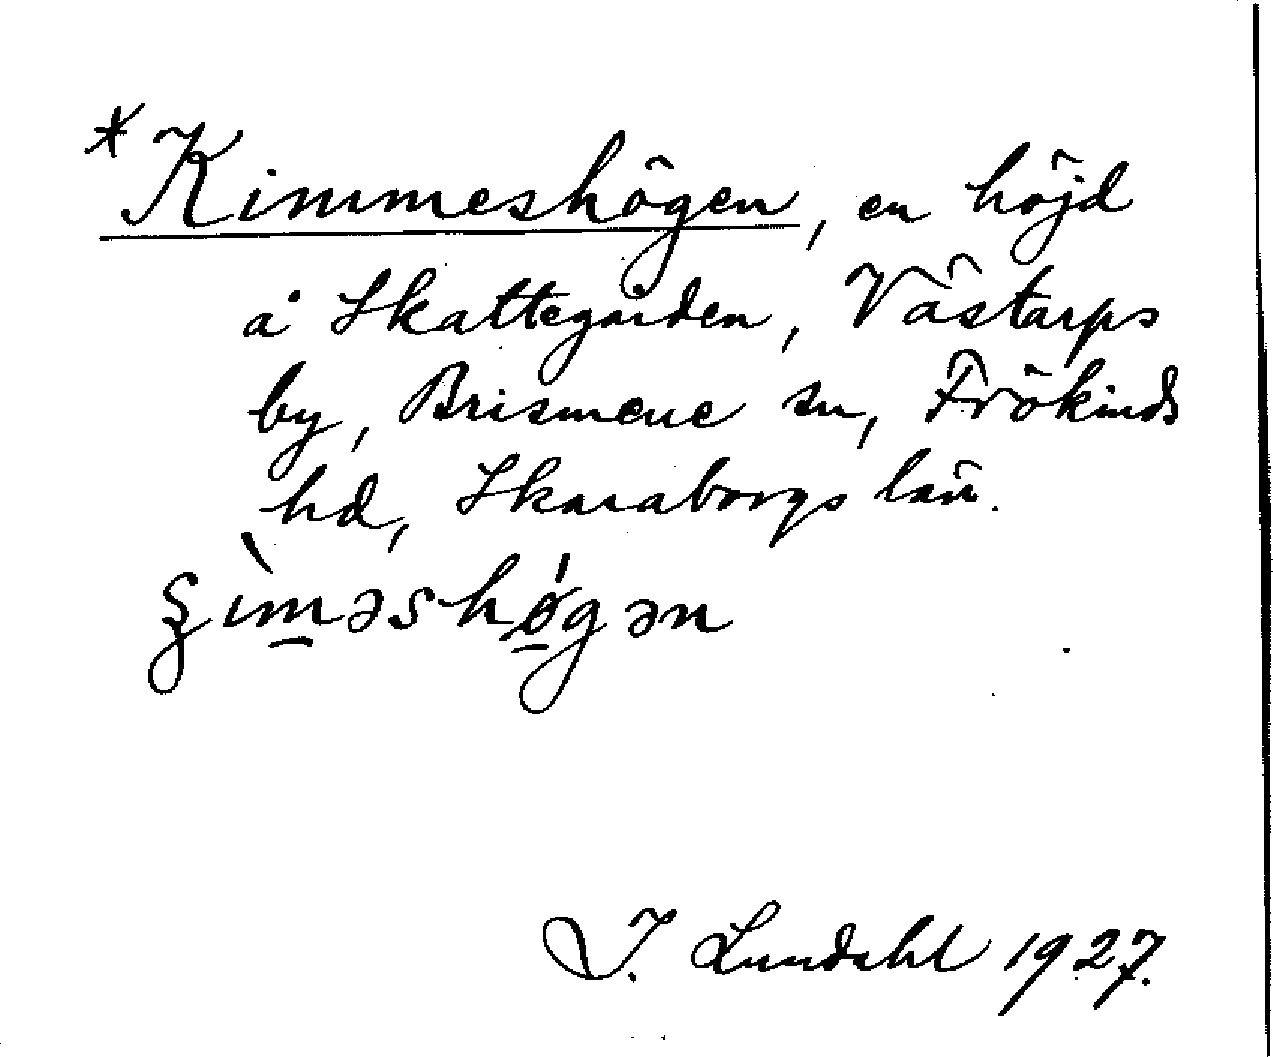 *Kimmeshögen, en höjd
å Skattegården, Västarps
by, Brismene sn, Frökinds
hd, Skaraborgs län.
ʂìm̲əshǿ̲gən
I. Lundahl 1927.